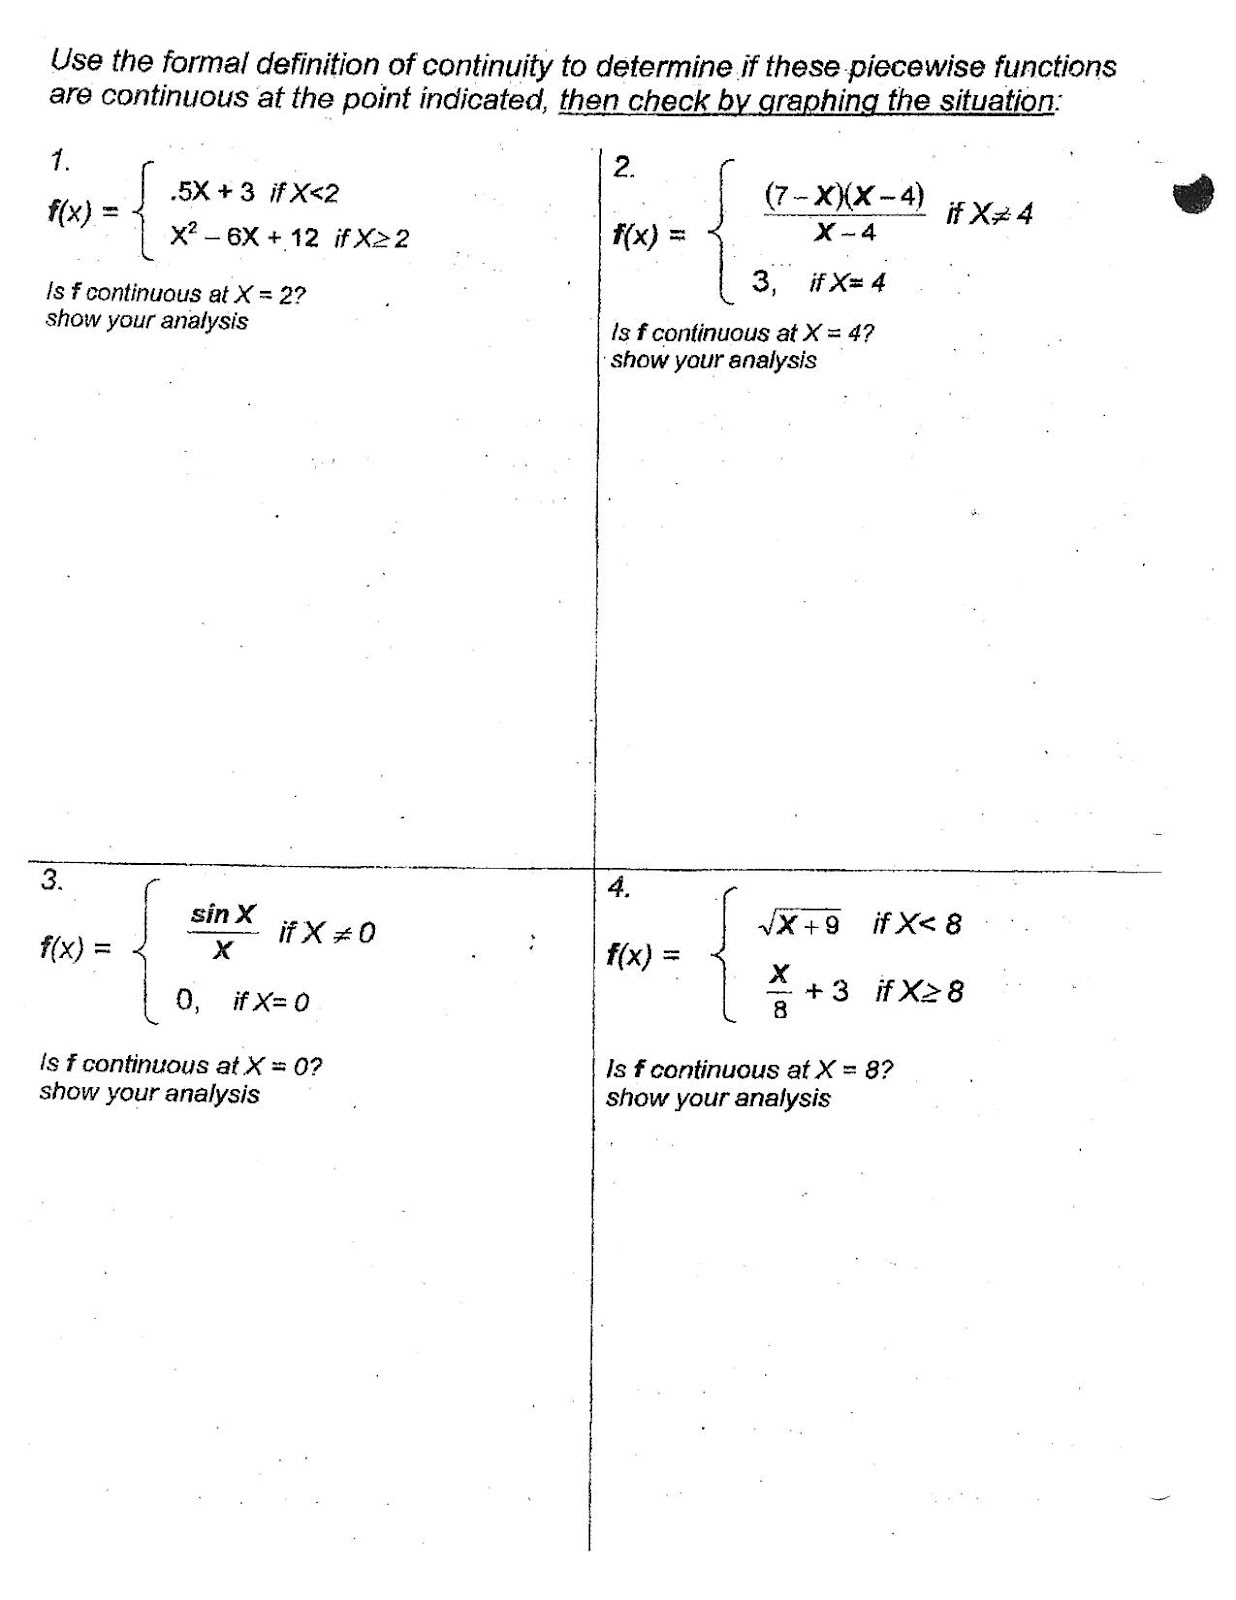 Use the formal definition of continuity to determine if these piecewise functions
are continuous at the point indicated, then check by graphing the situation:
1.
f(x) = { .5X + 3 if X<2
X² – 6X + 12 if X≥2
Is f continuous at X = 2?
show your analysis
2.
f(x) = { (7–X)(X–4)
X–4
if X≠4
3, if X= 4
Is f continuous at X = 4?
show your analysis
3.
f(x) = { sin X
X
if X ≠0
0, if X= 0
Is f continuous at X = 0?
show your analysis
4.
f(x) = { √X+9 if X< 8
X
8
+ 3 if X≥8
Is f continuous at X = 8?
show your analysis